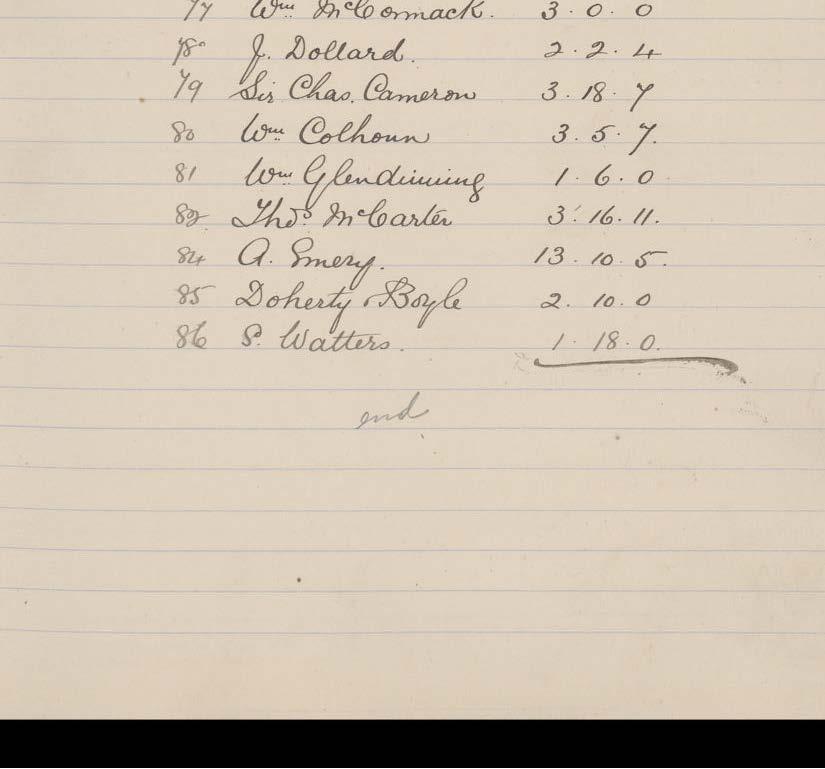 77 Wm McCormack. 3. 0. 0
78 J. Dollard. 2. 2. 4
79 Sir Chas. Cameron 3. 18. 7
80 Wm Colhoun 3. 5. 7.
81 Wm Glendinning 1. 6. 0
82 Thos McCarter 3. 16. 11.
84 A. Emery. 13. 10. 5.
85 Doherty Boyle 2. 10. 0
86 S. Watters. 1. 18. 0.
end